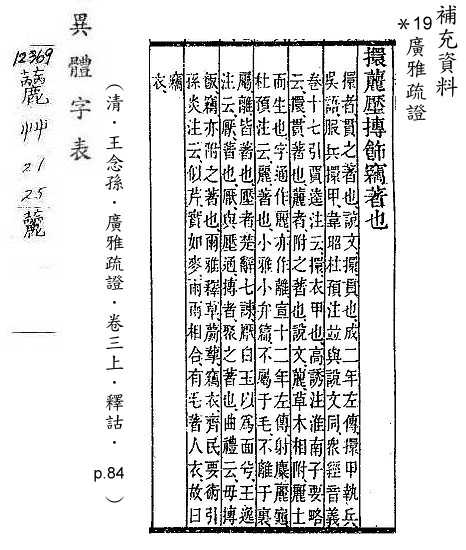 補充資料
*19 廣雅疏證
擐蘿壓搏飾竊著也
擐者貫之著也說文擐貫也成二年左傳擐甲執兵
吳語服兵擐甲韋昭杜預注竝與說文同眾經音義
卷十七引賈逵注云擐衣甲也高誘注淮南子要略
云擐貫著也蘿者附之著也說文蘿草木相附蘿土
而生也字通作麗亦作離宣十二年左傳射麋麗龜
杜預注云麗著也小雅小弁篇不屬于毛不離于裏
屬離皆著也壓者楚辭七諫厭白玉以為面兮王逸
注云厭著也厭與壓通搏者聚之著也曲禮云毋摶
飯竊亦附之著也爾雅釋草蘮蒘竊衣齊民要術引
孫炎注云似芹實如麥兩兩相合有毛著人衣故曰
竊衣
(清.王念孫.廣雅疏證.卷三上.釋詁. p.84)
異體字表
12369
艸
21
25